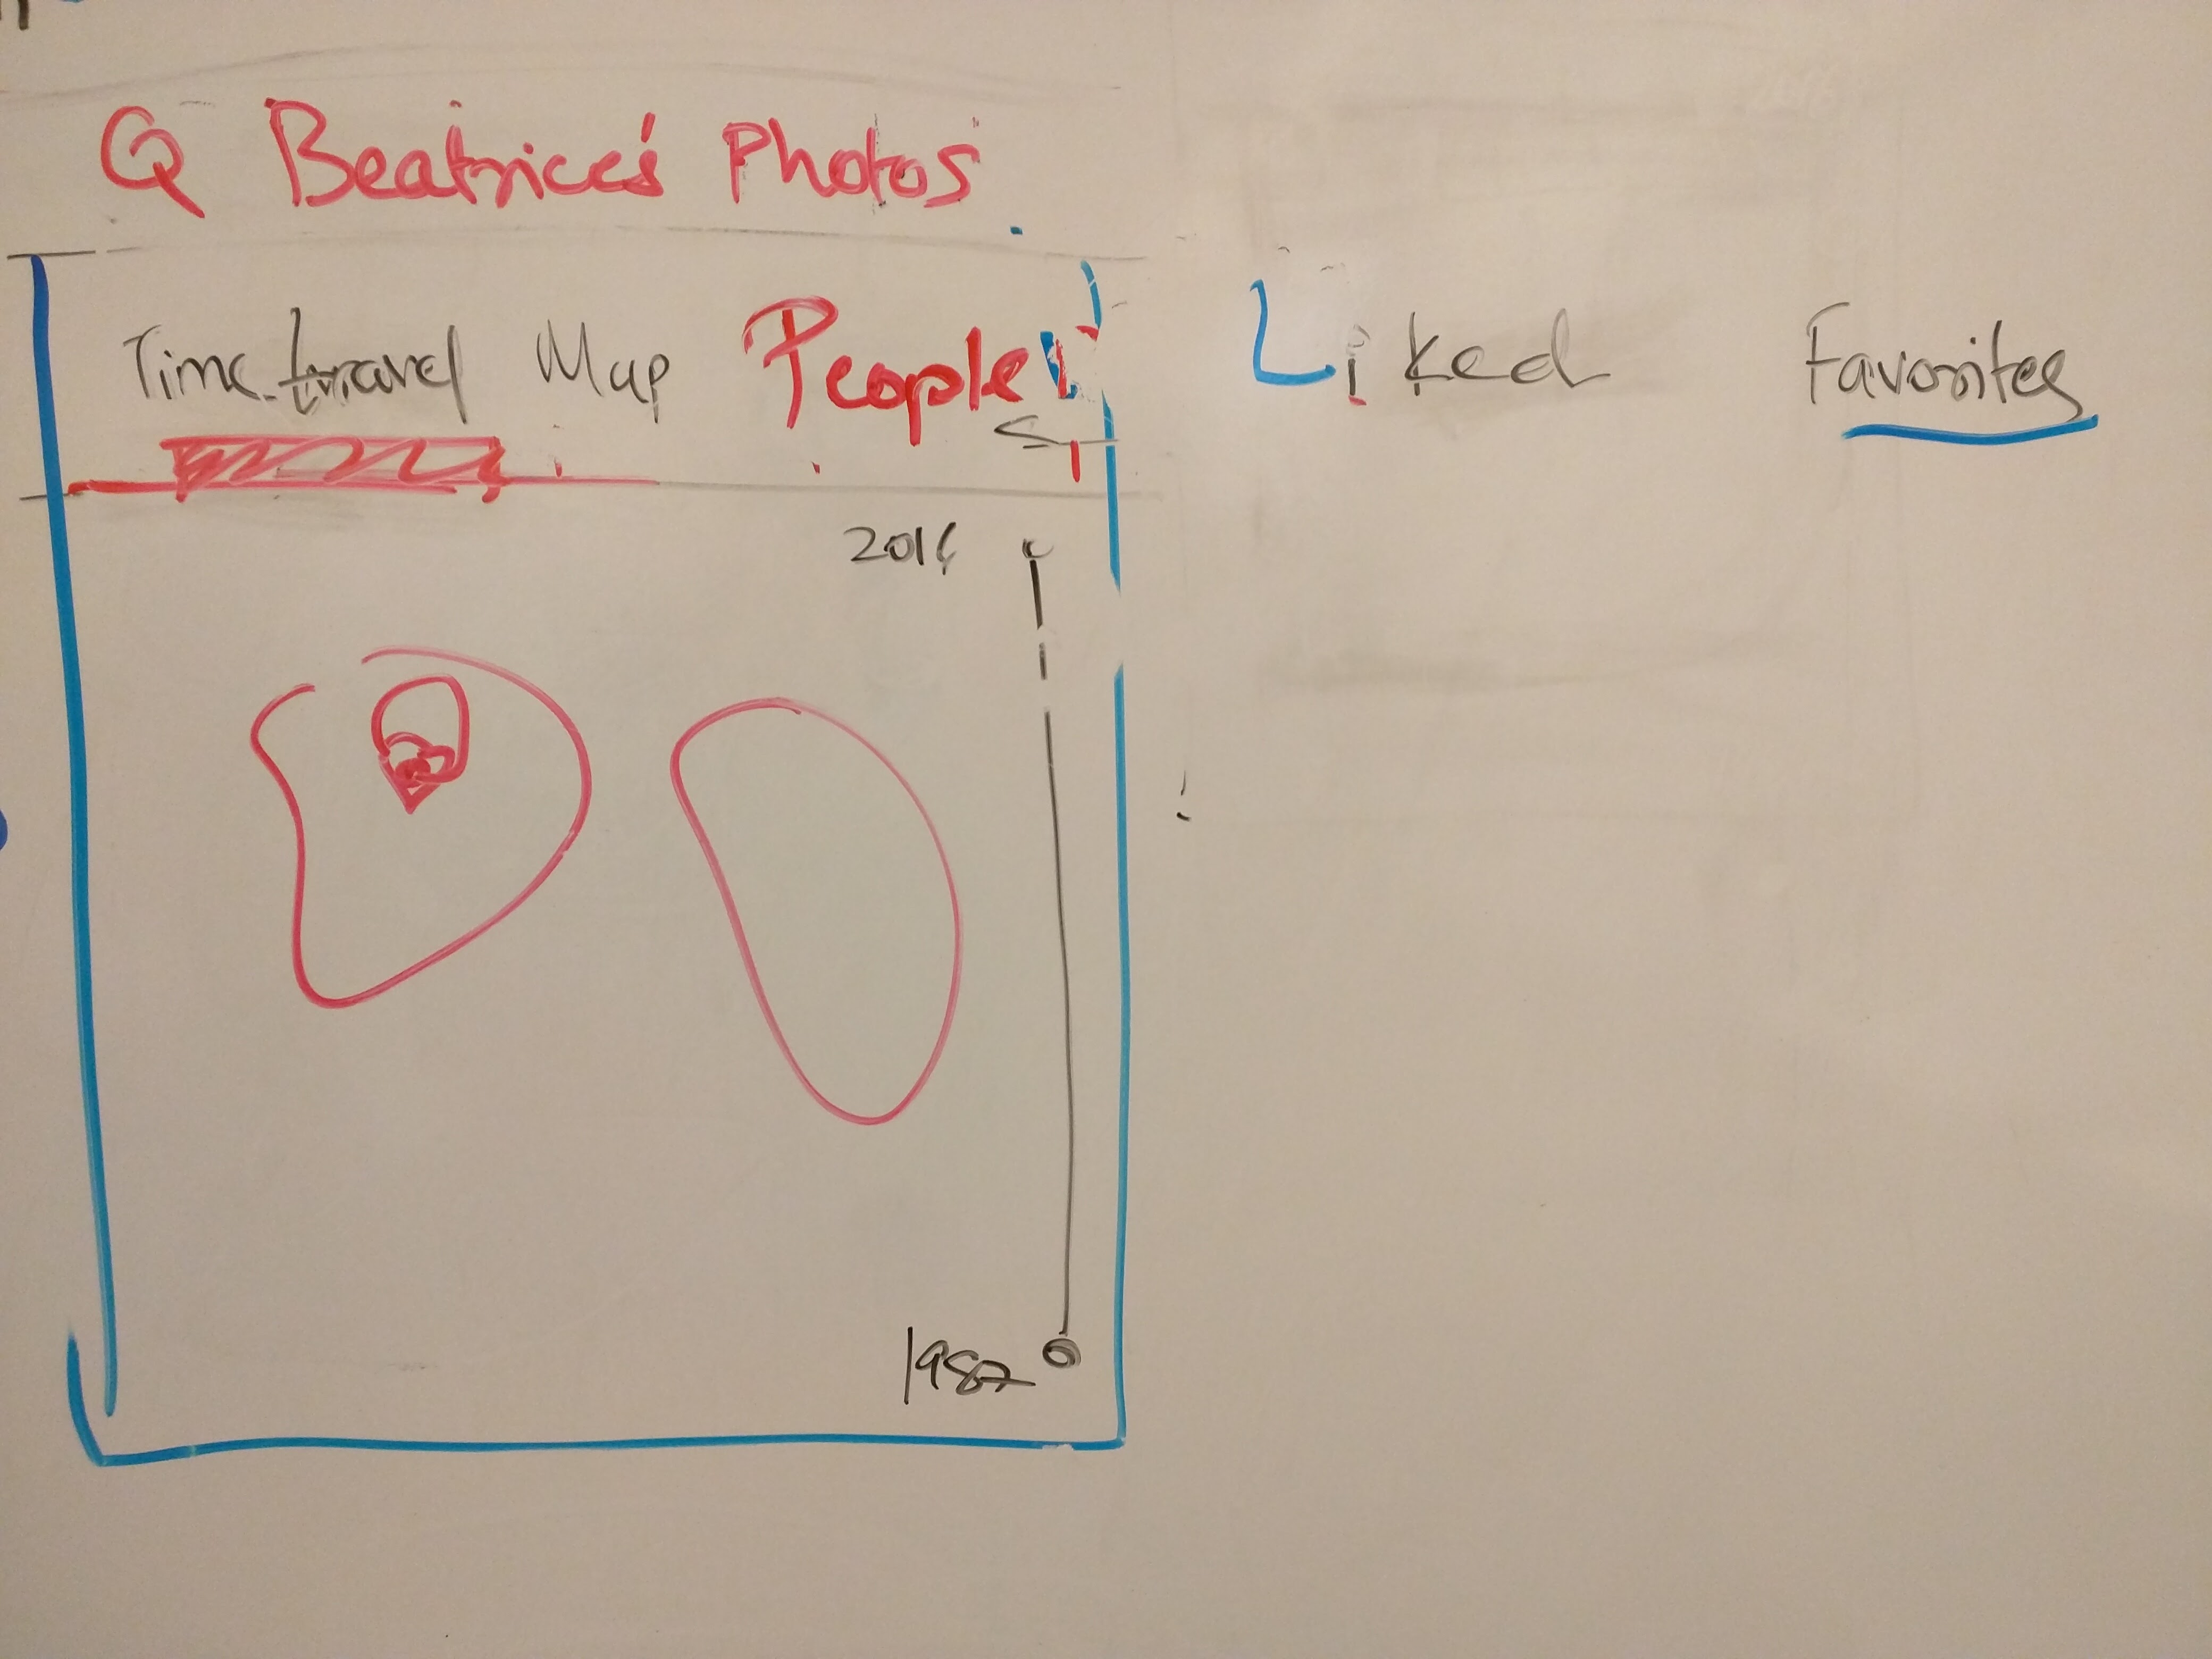 Q Beatrice's Photos
Time travel Map People Liked Favorites
2016
1982